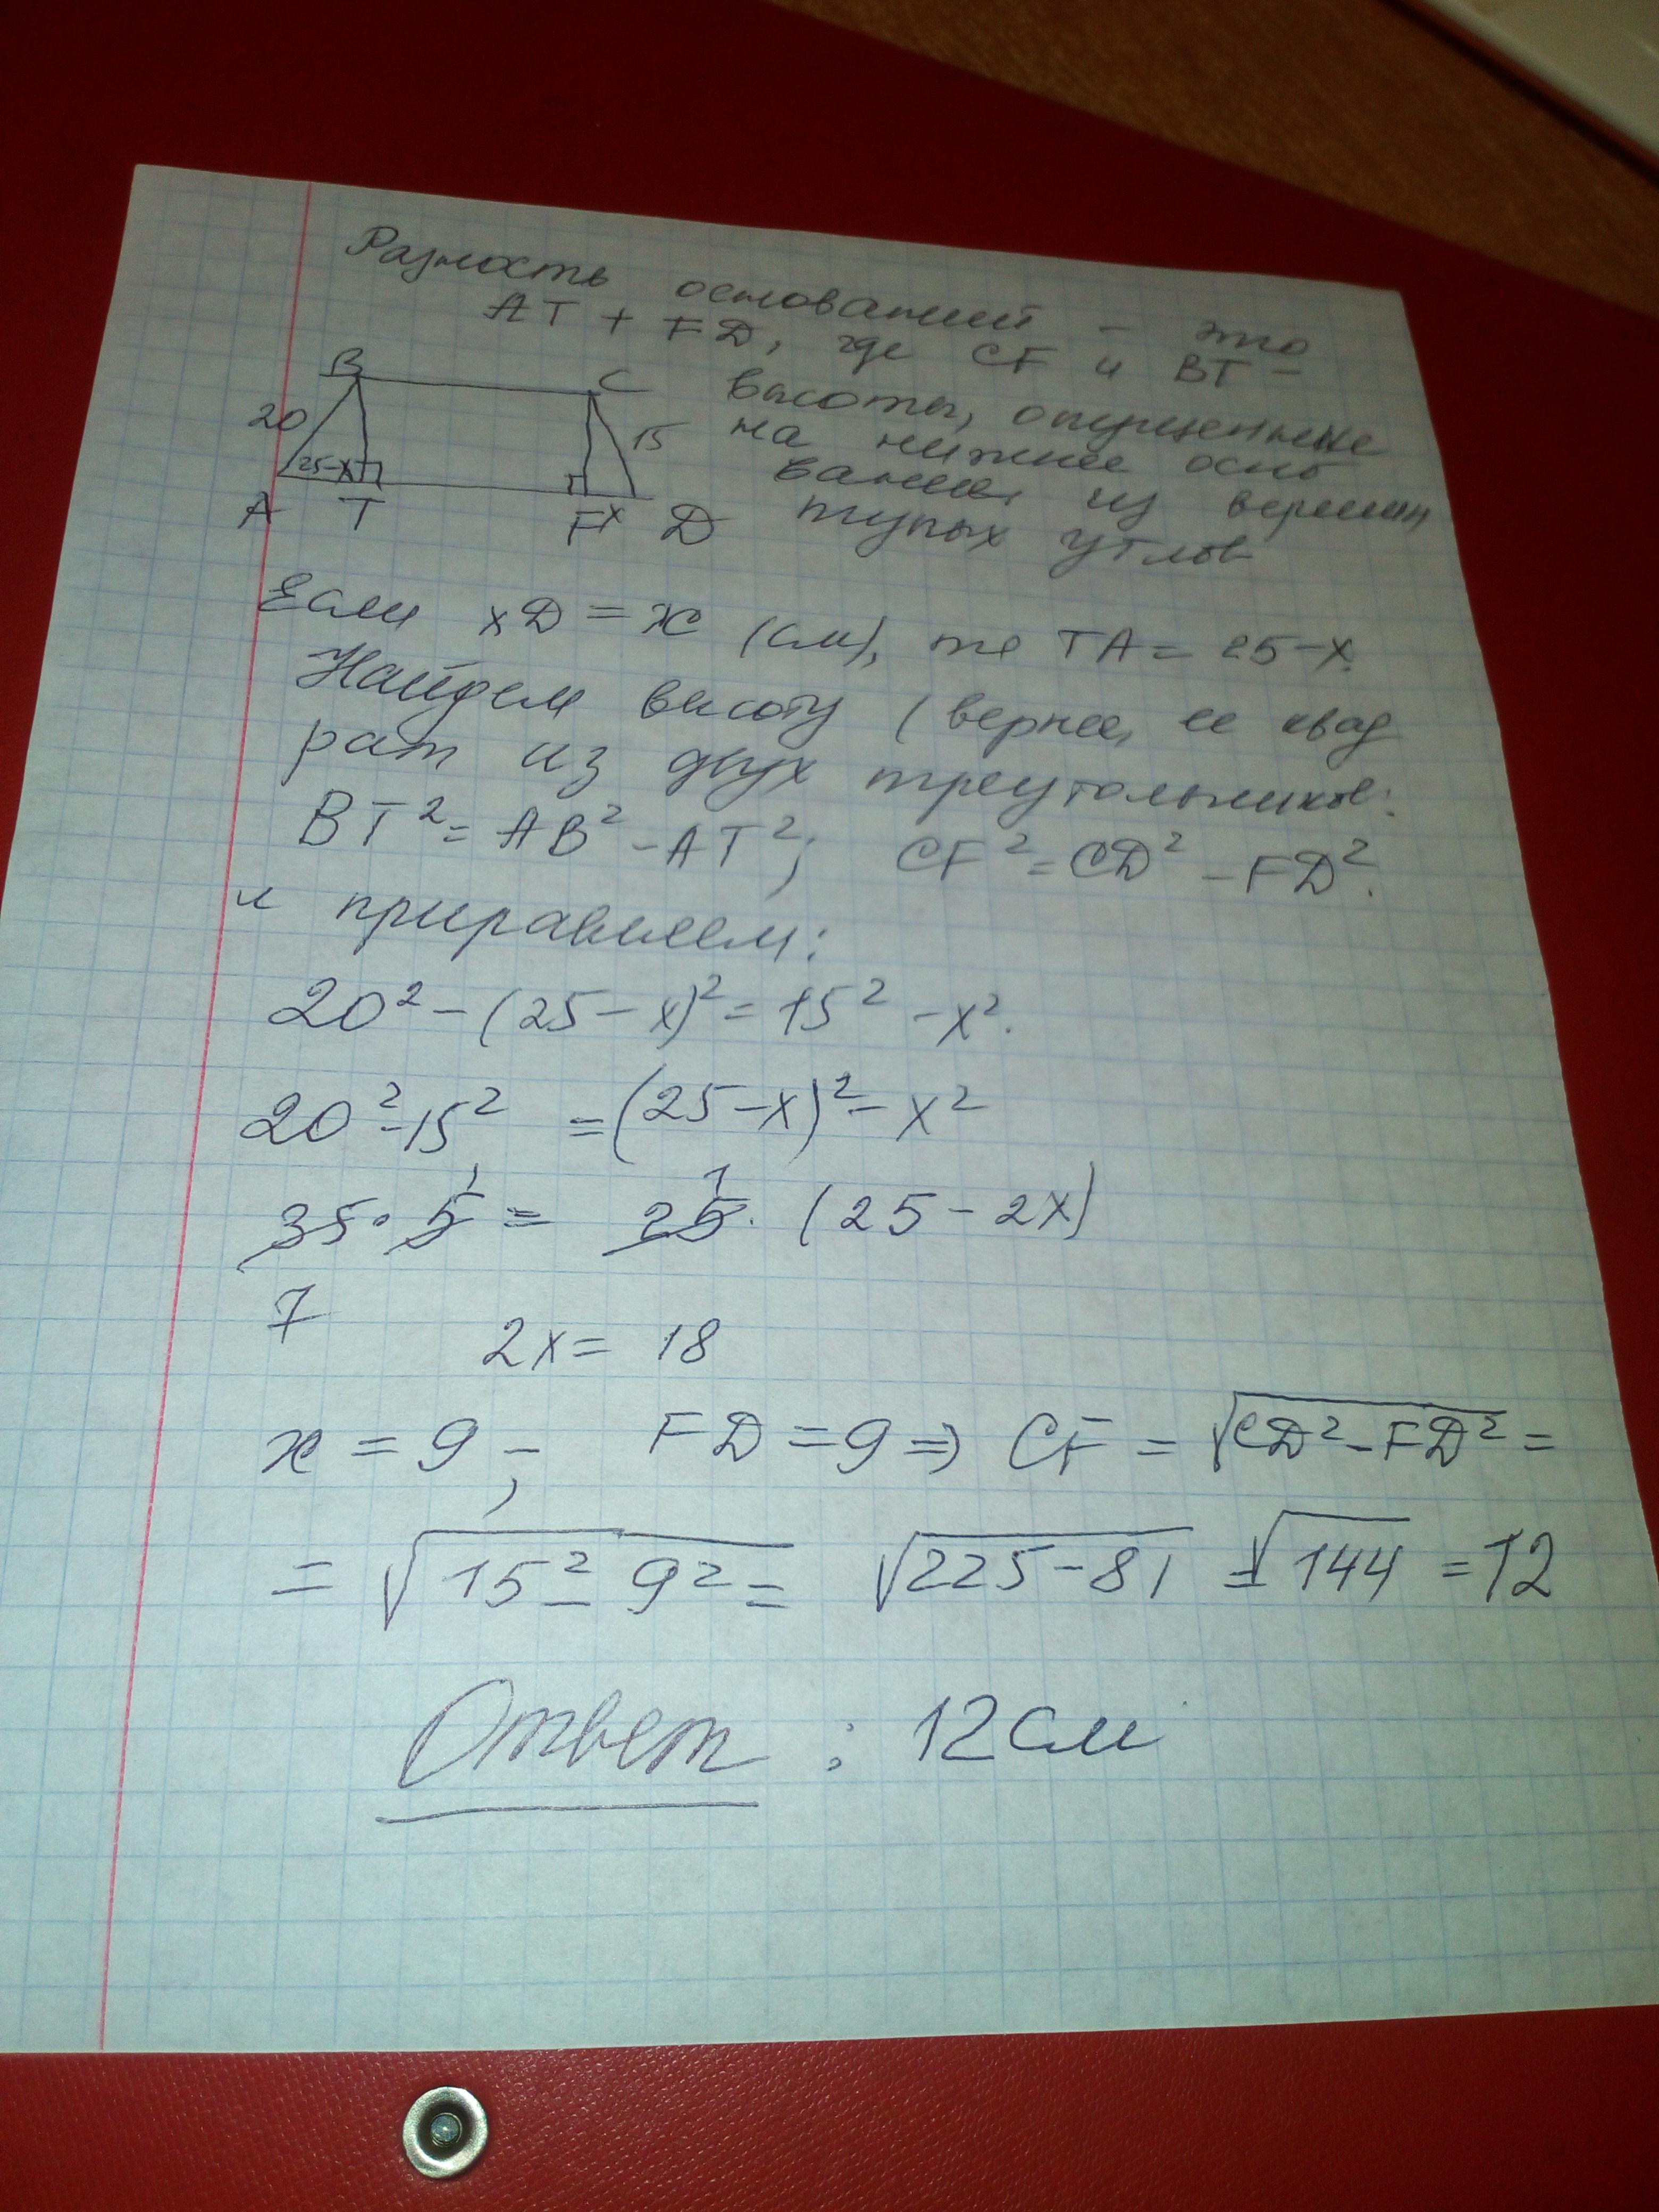 Разность оснований – это
AT + FD, где CF и BT –
высоты, опущенные
на нижнее осно
вание из вершин
тупых углов
B
C
20
15
25-x
A T F x D
Если xD = x (см), то TA = 25-x.
Найдем высоту (вернее, ее квад
рат из двух треугольников:
BT² = AB² - AT²; CF² = CD² - FD².
и приравняем:
20² - (25 - x)² = 15² - x².
20² - 15² = (25 - x)² - x²
35 · 5 = 25 · (25 - 2x)
1 1
7
2x = 18
x = 9; FD = 9 ⇒ CF = √CD² - FD² =
= √15² - 9² = √225 - 81 = √144 = 12
Ответ : 12 см